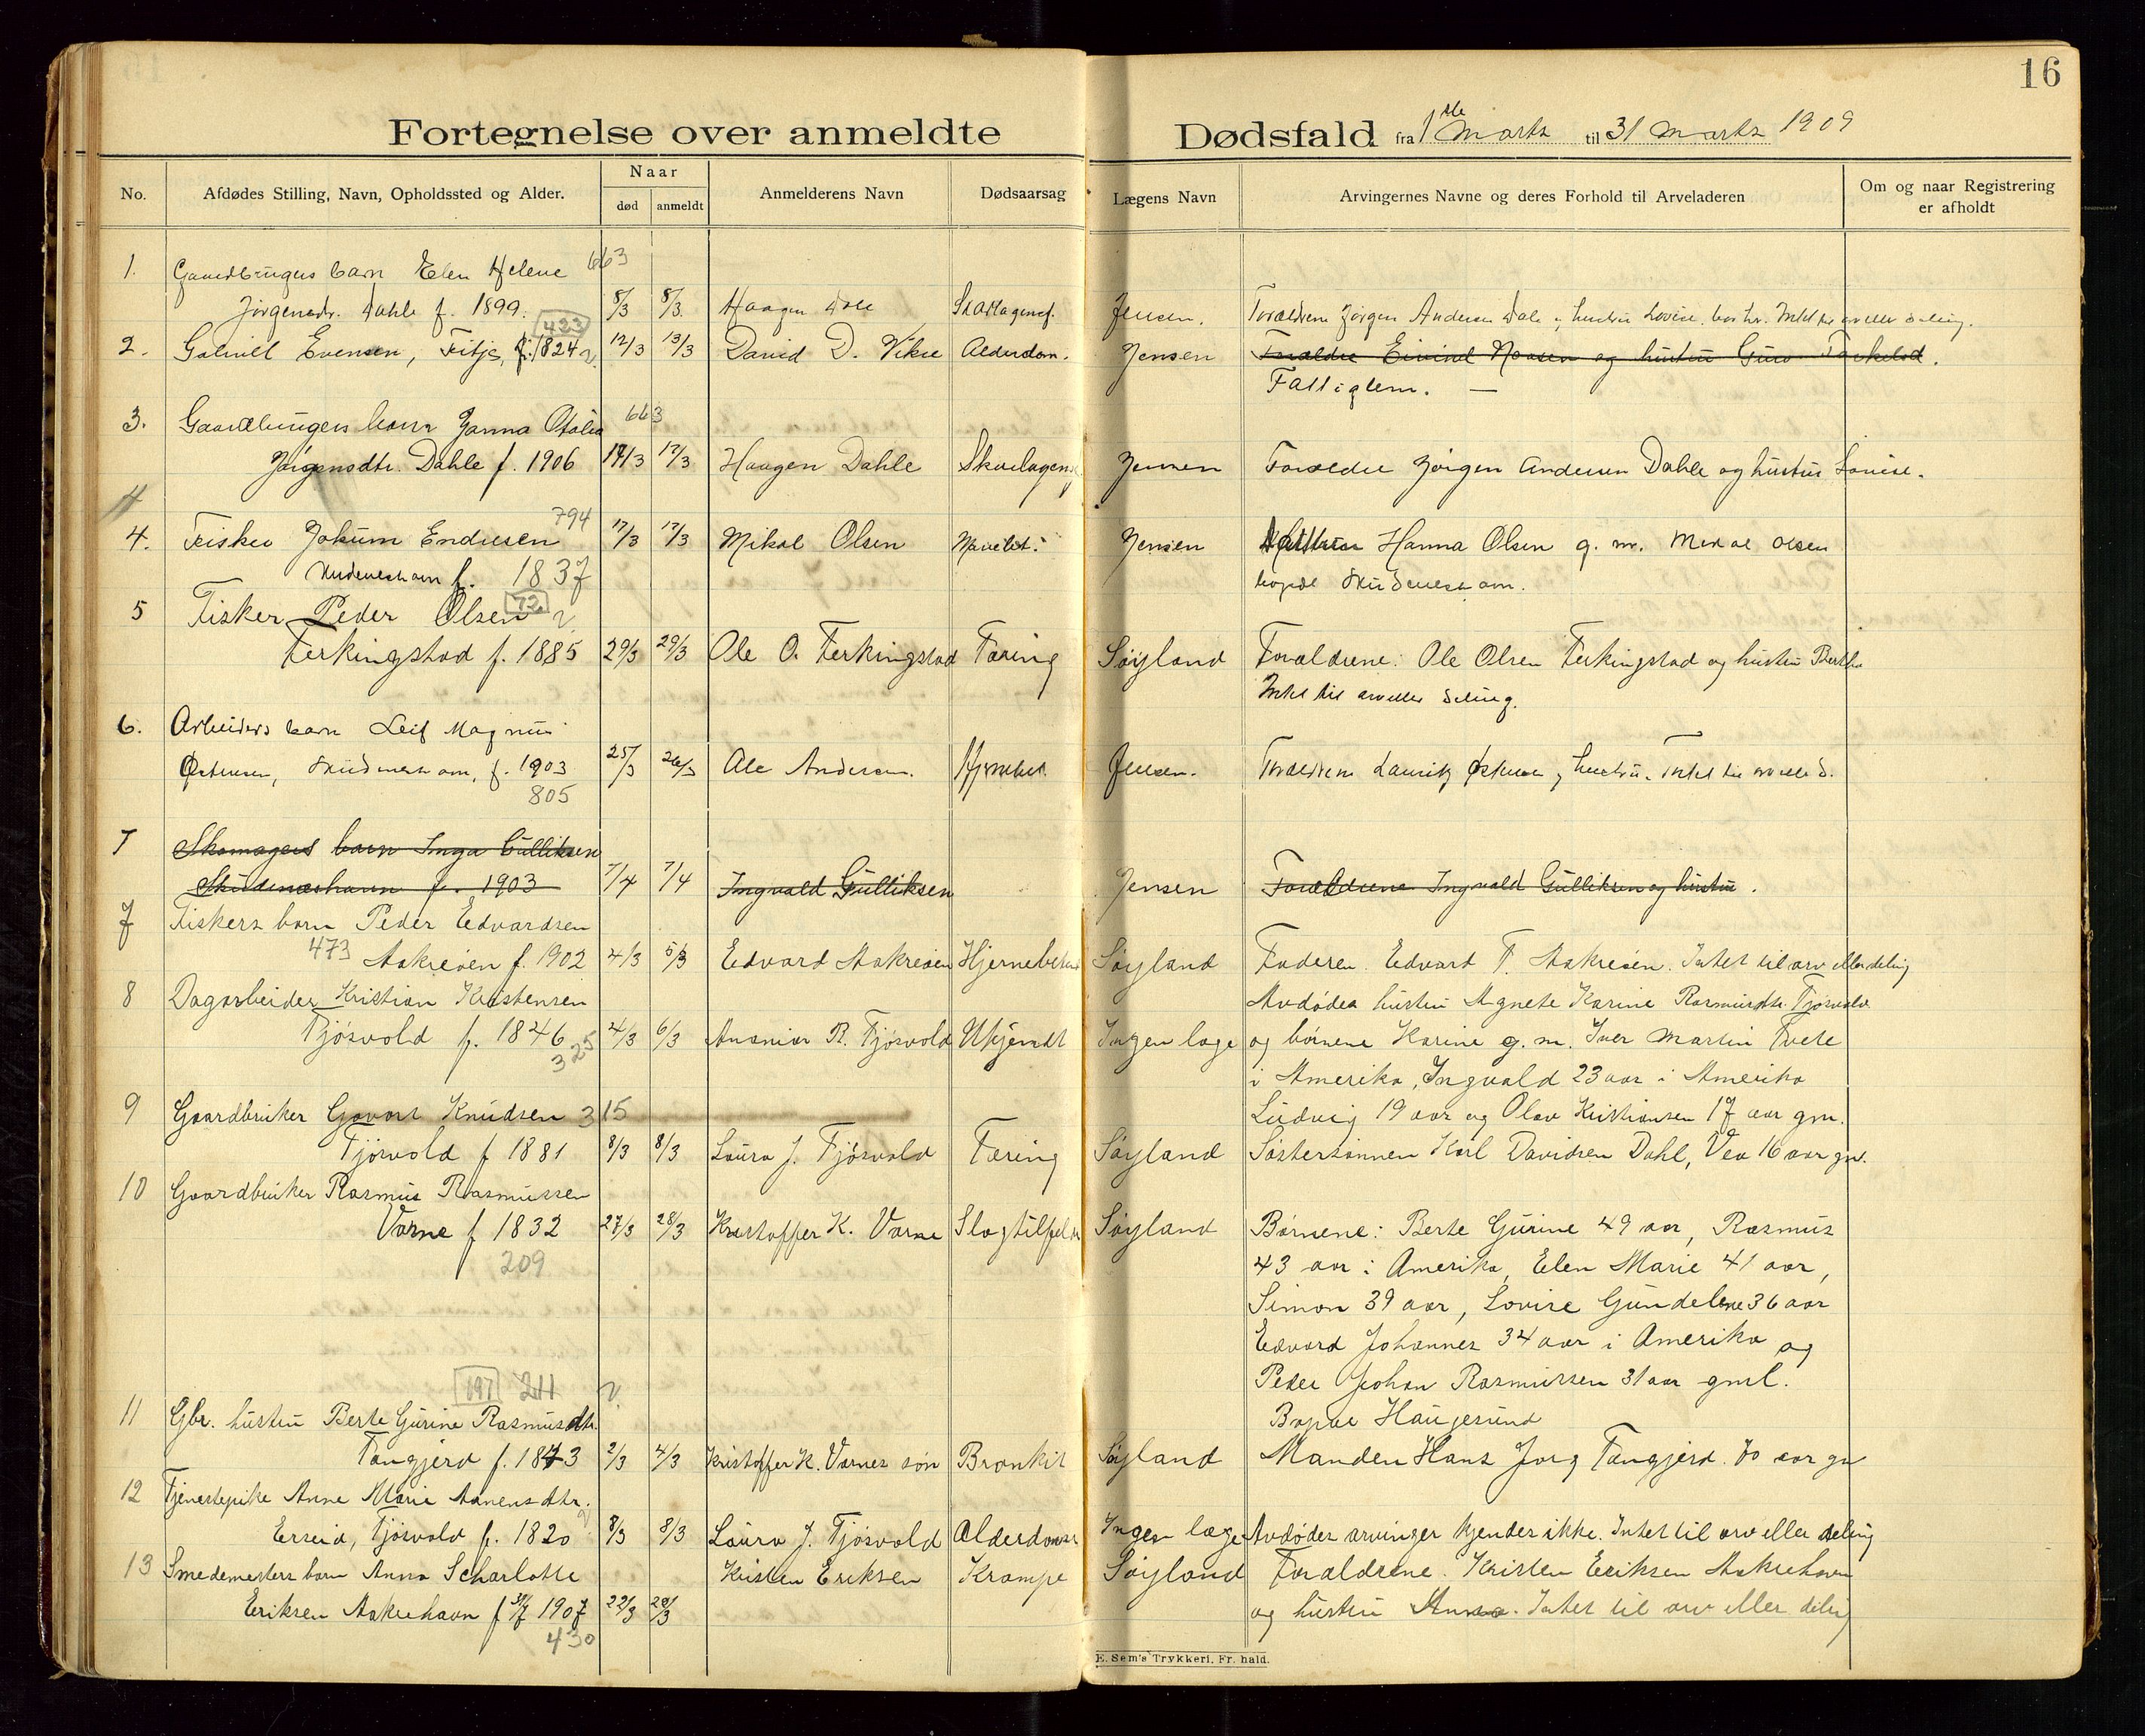 16
Fortegnelse over anmeldte Dødsfald fra 1ste Marts til 31 Marts 1909
No. Afdødes Stilling, Navn, Opholdssted og Alder. Naar død anmeldt Anmelderens Navn Dødsaarsag Lægens Navn Arvingernes Navne og deres Forhold til Arveladeren Om og naar Registrering er afholdt
1. Gaardbrugers barn Elen Helene 663
Jørgensdr. Dahle f. 1899. 8/3 8/3 Haagen Dale Skarlagensf. Jensen. Forældrene Jørgen Andersen Dale og hustru Lovise. Intet til arv eller deling.
423
2. Gabriel Evensen, Fitje, f. 1824 12/3 13/3 David D. Vikse Alderdom. Jensen Forældre Eivind Noasen og hustru Guro Torkelsd.
Fattiglem. —
3. Gaardbrugers barn Janna Otalia 663
Jørgensdtr. Dahle f. 1906 17/3 17/3 Haagen Dahle Skarlagensf. Jensen Forældre Jørgen Andersen Dahle og hustru Lovise.
4
794
4. Fisker Jokum Endresen 17/3 17/3 Mikal Olsen Jensen Hanna Olsen g. m. Mikal Olsen
Skudeneshavn f. 1837 bopæl Skudeneshavn.
72
5 Fisker Peder Olsen
Ferkingstad f. 1885 29/3 29/3 Ole O. Ferkingstad Tæring Søyland Forældrene: Ole Olsen Ferkingstad og hustru Bertha
Intet til arv eller deling.
6. Arbeiders barn Leif Magnus
Østensen, Skudeneshavn, f. 1903 25/3 26/3 Ole Andersen. Jensen. Forældrene Laurits Østensen og hustru. Intet til arv eller d.
805
7 Skomagers barn Inga Gulliksen
Skudeneshavn f. 1903 7/4 7/4 Ingvald Gulliksen Jensen Forældrene Ingvald Gulliksen og hustru.
7 Fiskers barn Peder Edvardsen
473 Aakreøen f. 1902 4/3 5/3 Edvard Aakreøen Hjernebetend Søyland Faderen Edvart T. Aakreøen. Intet til arv eller deling
8 Dagarbeider Kristian Kristensen Avdødes hustru Agnete Karine Rasmusdtr. Tjøsvold
Tjøsvold f. 1846 4/3 6/3 Ananias B. Tjøsvold Ukjendt Ingen læge og børnene Karine g. m. Iver Martin Tvete
325
i Amerika, Ingvald 23 aar i Amerika
9 Gaardbruker Govart Knudsen 315 Ludvig 19 aar og Olav Kristiansen 17 aar gm.
Tjøsvold f 1881 8/3 8/3 Laura J. Tjøsvold Tæring Søyland Søstersønnen Karl Davidsen Dahl, Vea 16 aar gm.
10 Gaardbruker Rasmus Rasmussen
Varne f 1832 27/3 28/3 Kristoffer K. Varne Slagtilfelde Søyland Børnene: Berte Gurine 49 aar, Rasmus
209 43 aar i Amerika, Elen Marie 41 aar,
Simon 39 aar, Lovise Gundelene 36 aar
Edvard Johannes 34 aar i Amerika og
197 211 Peder Johan Rasmussen 31 aar gml.
11 Gbr. hustru Berte Gurine Rasmusdtr. Bopæl Haugesund
Tangjerd f. 1843 2/3 4/3 Kristoffer K. Varnes søn Bronkit Søyland Manden Hans Jorg Tangjerd. 70 aar gm
12 Tjenestepike Anne Marie Aanensdtr.
Erseid, Tjøsvold f. 1820 8/3 8/3 Laura J. Tjøsvold Alderdomss Ingen læge Avdødes arvinger kjendes ikke. Intet til arv eller deling
13 Smedemesters barn Anna Scharlotte Kristen Eriksen Krampe Søyland Forældrene. Kristen Eriksen Aakrehavn
Eriksen Aakrehavn f 31/7 1907 22/3 28/3 og hustru Anna. Intet til arv eller deling
430
E. Sem's Trykkeri, Fr. hald.